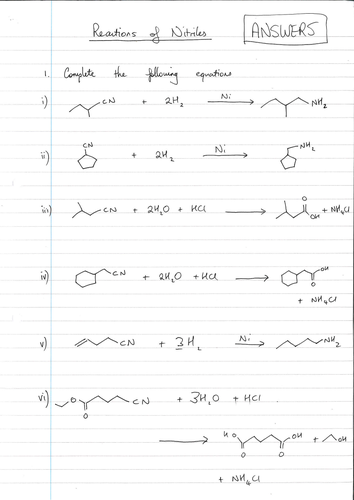 Reactions of Nitriles
ANSWERS
1. Complete the following equations
i) CN + 2H₂ Ni → NH₂
ii) CN + 2H₂ Ni → NH₂
iii) CN + 2H₂O + HCl → O OH + NH₄Cl
iv) CN + 2H₂O + HCl → OH O
+ NH₄Cl
v) CN + 3H₂ Ni → NH₂
vi) O O CN + 3H₂O + HCl
→ HO O O OH + OH
+ NH₄Cl